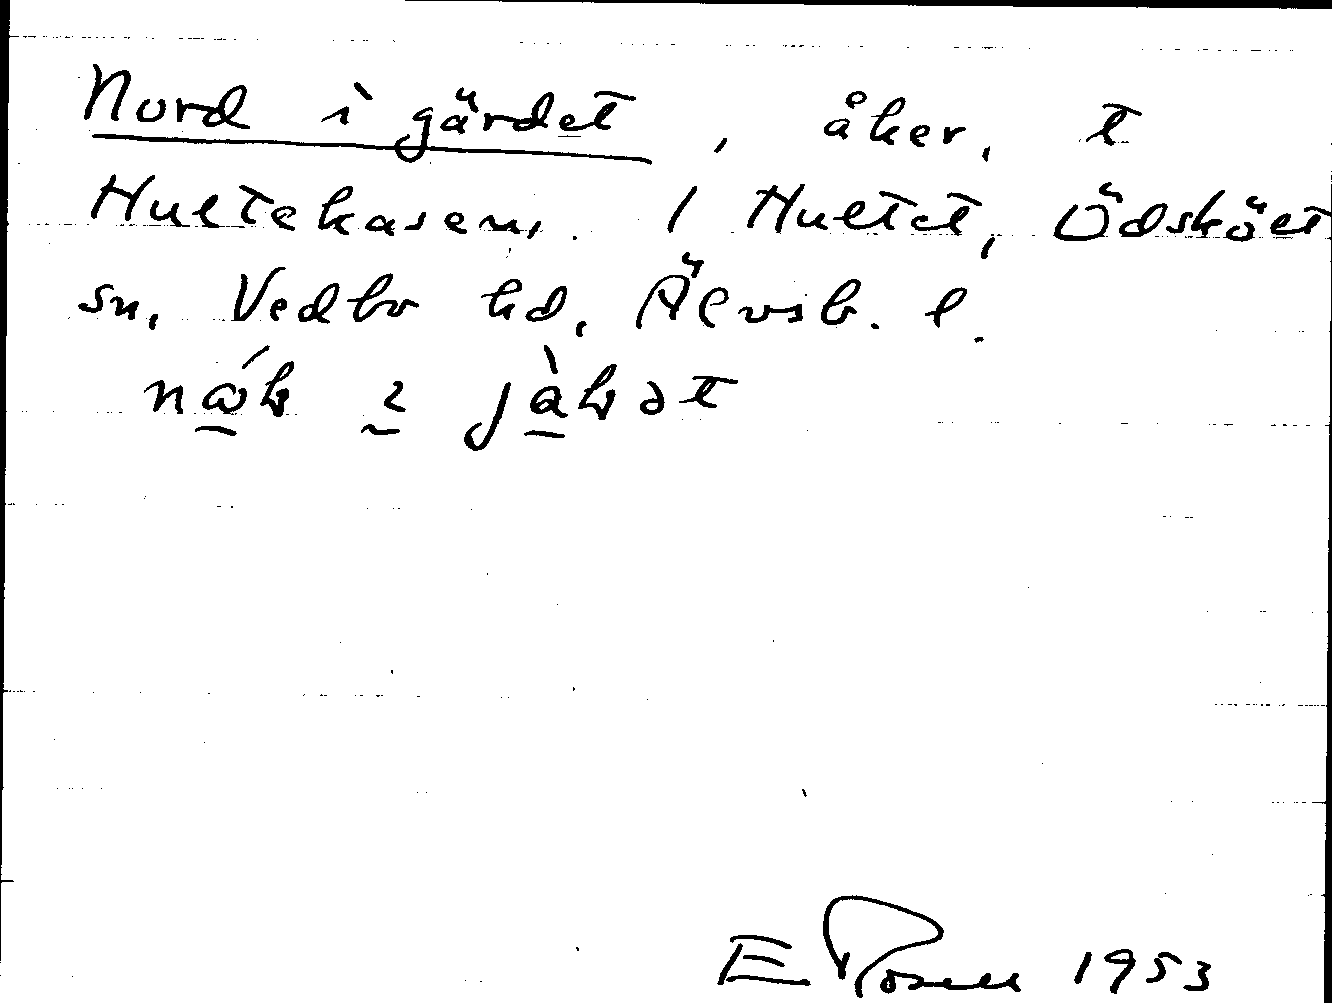 Nord i gärdet, åker, t
Hultekasen, 1 Hultet, Ödskölt
sn, Vedbo hd, Älvsb. l.
E Rosell 1953